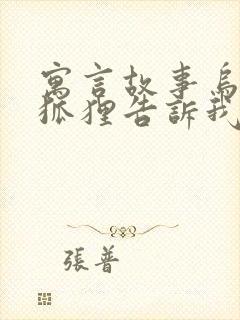 寓言故事烏
狐狸告訴我
張普